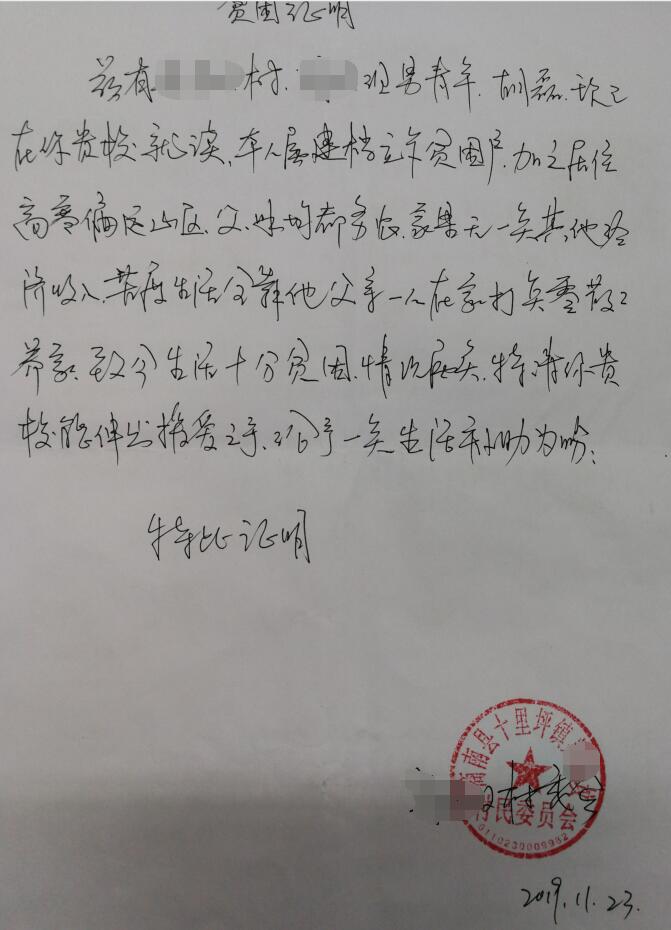 贫困证明
兹有 村 组男青年胡磊,现已
在你贵校就读,本人属建档立卡贫困户,加之居住
高寒偏远山区,父、 均都务农,家里无一矣其他经
济收入,苦度生活全靠他父亲一人在家打矣零散工
养家,致今生活十分贫困,情况属实,特请你贵
校能伸出援爱之手,给予一矣生活补助为盼;
特此证明
商南县十里坪镇
村委会
村民委员会
2019.11.23.